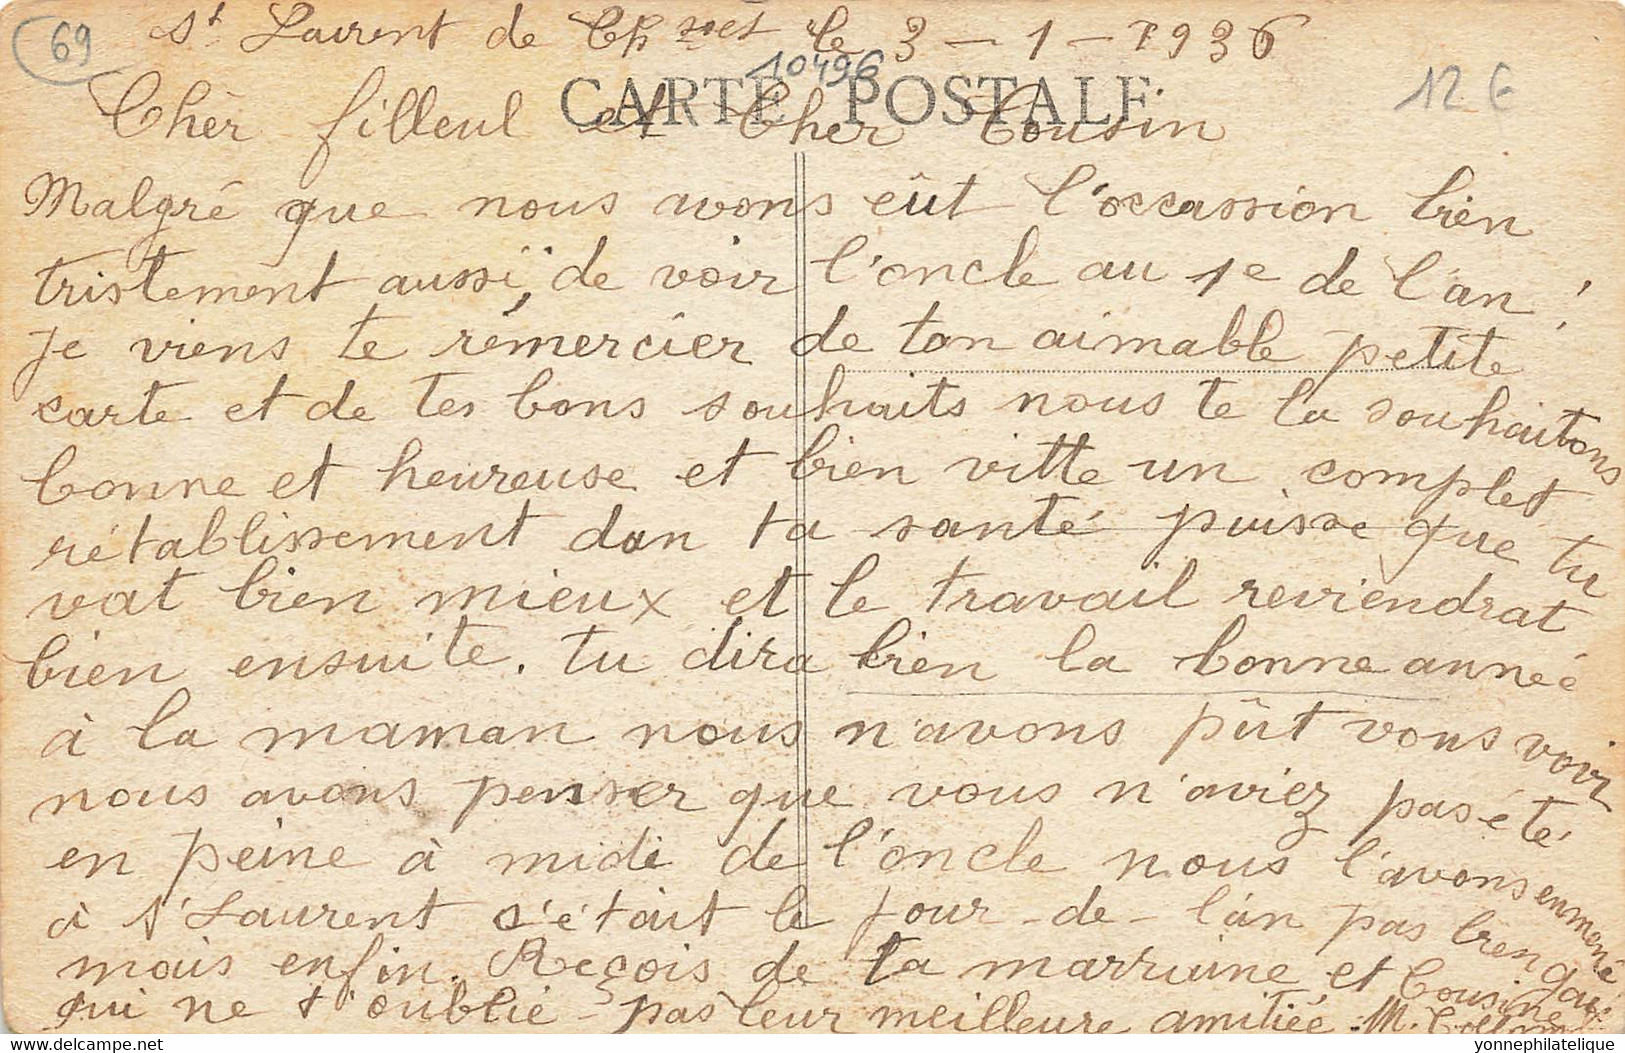 69
St Laurent de le 3 - 1 - 1936
10496
12 €
CARTE POSTALE
Chèr filleul et Cher Cousin
Malgré que nous avons eût l'occassion bien
tristement aussi, de voir l'oncle au 1e de l'an !
je viens te rémercier de ton aimable petite
carte et de tes bons souhaits nous te la souhaitons
bonne et heureuse et bien vitte un complet
rétablissement dan ta santé puisse que tu
vat bien mieux et le travail reviendrat
bien ensuite. tu dira bien la bonne année
à la maman nous n'avons pût vous voir
nous avons penser que vous n'aviez pas été
en peine à midi de l'oncle nous l'avons enmené
à St Laurent s'était le jour-de-l'an pas bien gai
mais enfin. Reçois de ta marraine et Cousine
qui ne t'oublie pas leur meilleure amitiée. M.
yonnephilatelie
yonnephilatelique